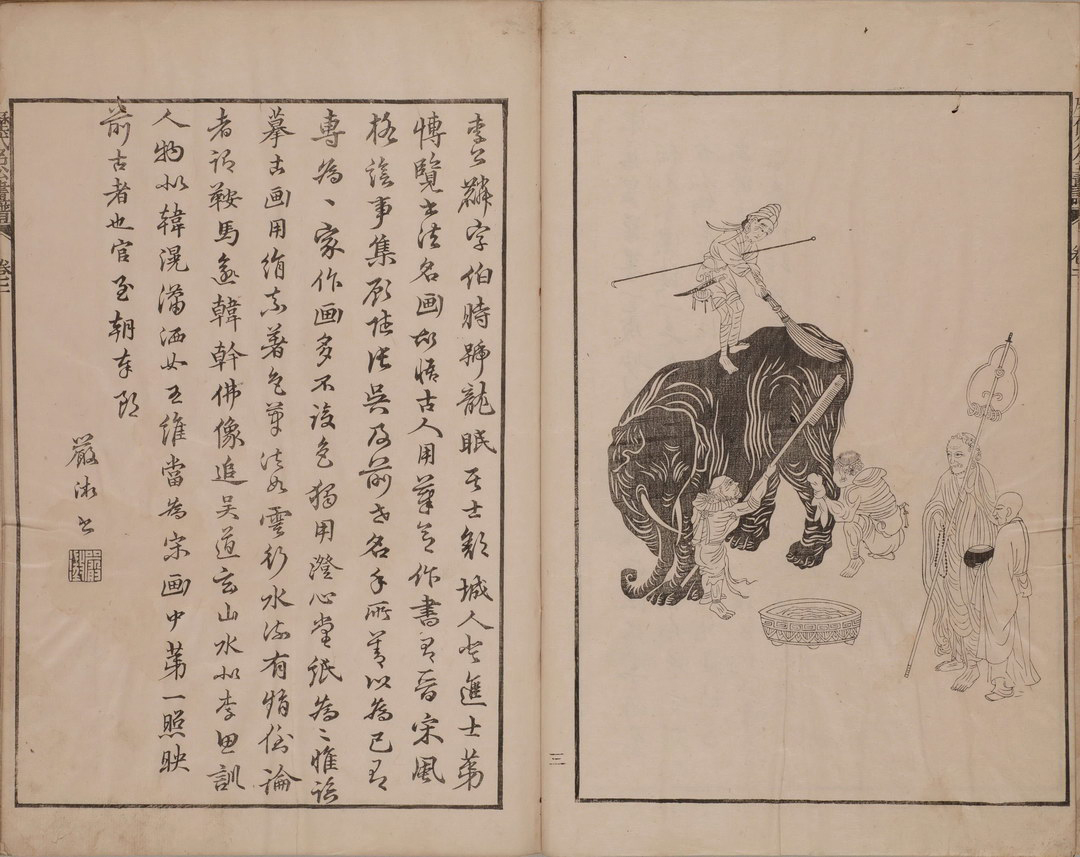 李公麟字伯時號龍眠居士舒城人登進士第
博覽書法名画故悟古人用筆意作書有晋宋風
格繪事集顧陸張吳及前世名手所善以為己有
專為一家作画多不設色獨用澄心堂紙為之惟臨
摹古画用絹素著色筆法如雲行水流有倒論
者謂鞍馬逾韓幹佛像追吳道玄山水似李思訓
人物似韓滉瀟洒如王維當為宋画中第一照映
前古者也官至朝奉郎
嚴書
三